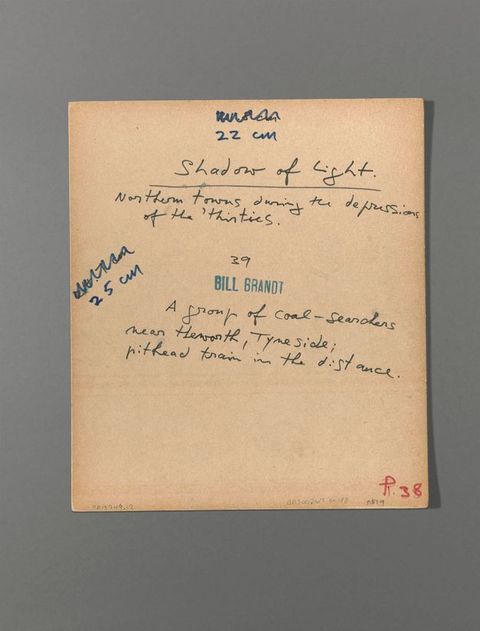 22 cm
Shadow of Light.
Northern towns during the depression
of the 'thirties.
25 cm
39
BILL BRANDT
A group of coal-searchers
near Heworth, Tyneside;
pithead train in the distance.
P. 38